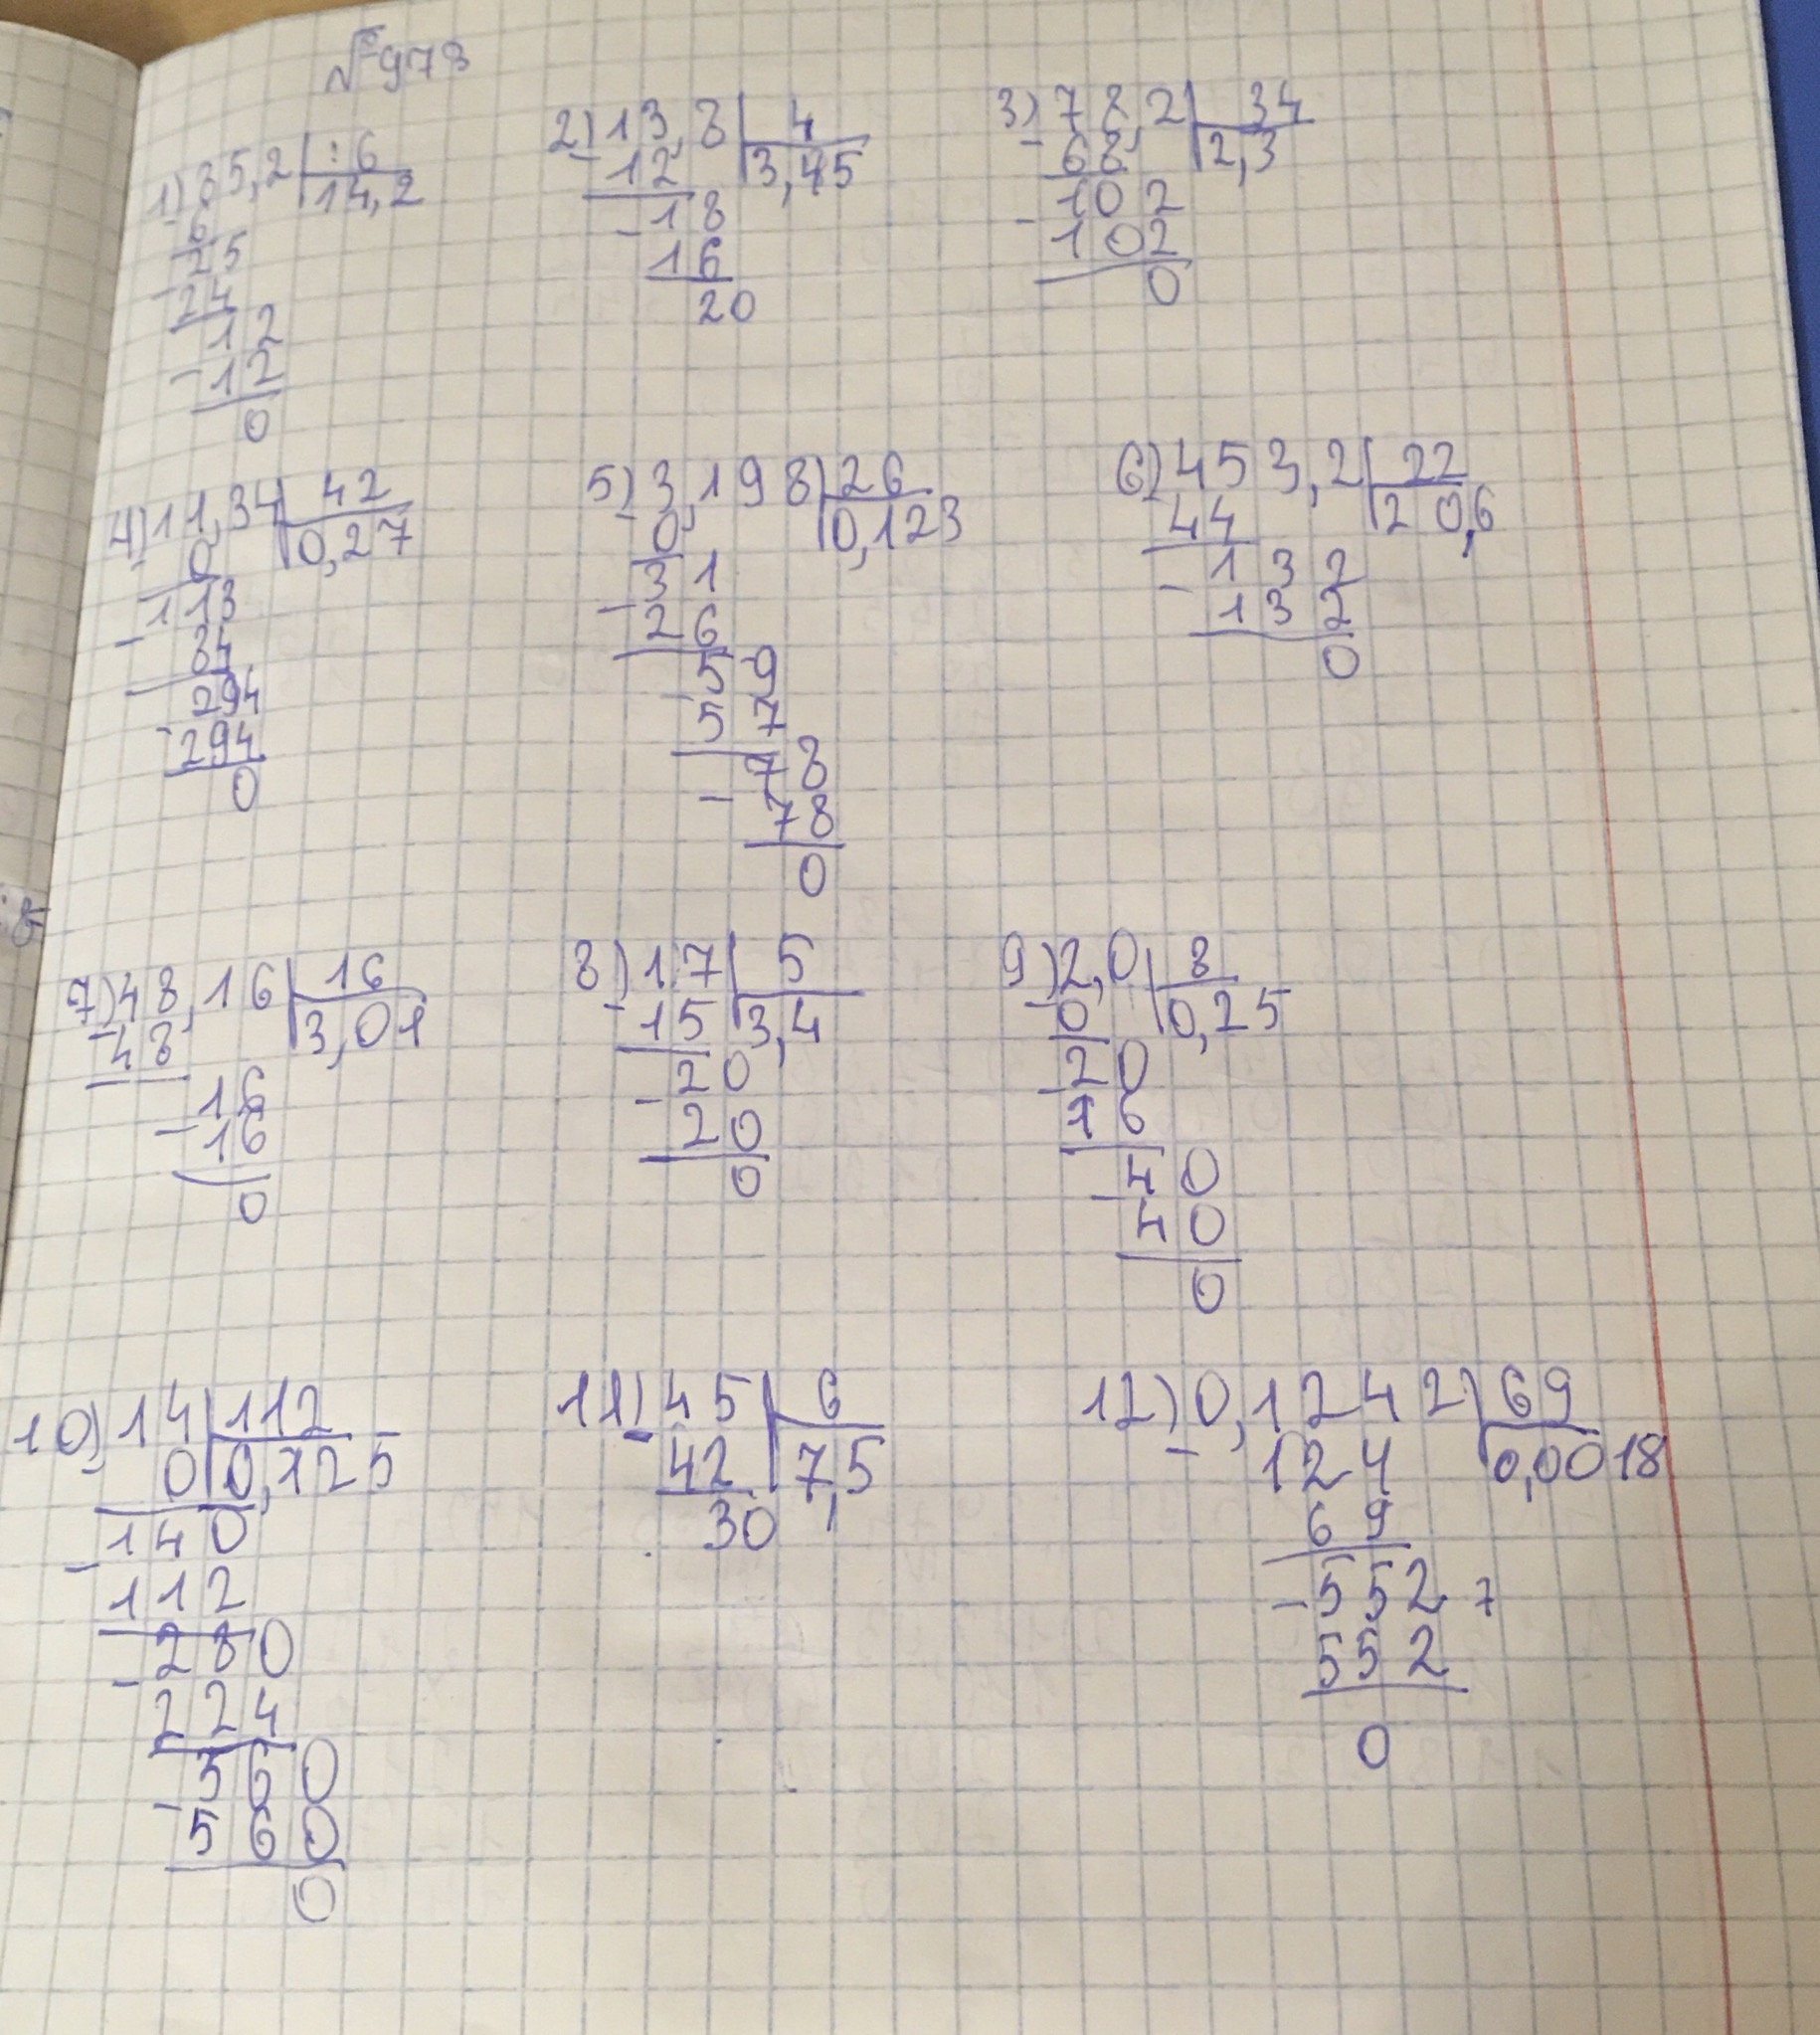 №973
1) 85,2 | : 6
6 | 14,2
25
24
12
12
0
2) 13,8 | 4
12 | 3,45
18
16
20
3) 78,2 | 34
68 | 2,3
102
102
0
4) 11,34 | 42
0 | 0,27
113
84
294
294
0
5) 3,198 | 26
0, | 0,123
31
26
59
57
78
78
0
6) 453,2 | 22
44 | 20,6
132
132
0
7) 48,16 | 16
48 | 3,01
16
16
0
8) 17 | 5
15 | 3,4
20
20
0
9) 2,0 | 8
0 | 0,25
20
16
40
40
0
10) 14 | 112
0 | 0,125
140
112
280
224
560
560
0
11) 45 | 6
42 | 7,5
30
12) 0,1242 | 69
124 | 0,0018
69
552 7
552
0